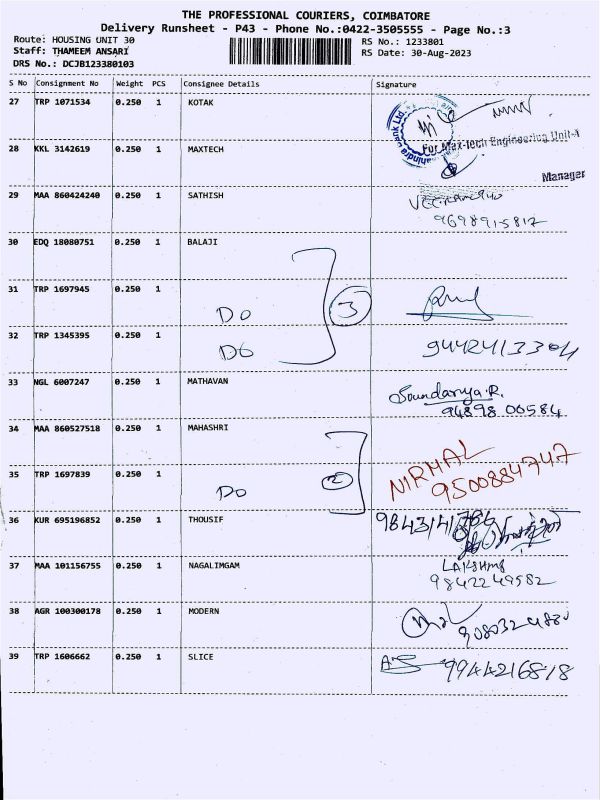 THE PROFESSIONAL COURIERS, COIMBATORE
Delivery Runsheet - P43 - Phone No.:0422-3505555 - Page No.:3
Route: HOUSING UNIT 30 RS No.: 1233801
Staff: THAMEEM ANSARI RS Date: 30-Aug-2023
DRS No.: DCJB123380103
S No Consignment No Weight PCS Consignee Details Signature
27 TRP 1071534 0.250 1 KOTAK
28 KKL 3142619 0.250 1 MAXTECH For Max-tech Engineering Unit-I
Manager
29 MAA 860424240 0.250 1 SATHISH
9698915812
30 EDQ 18080751 0.250 1 BALAJI
31 TRP 1697945 0.250 1
DO 3
32 TRP 1345395 0.250 1
DO 9442413304
33 NGL 6007247 0.250 1 MATHAVAN Soundarya.R.
94898 00584
34 MAA 860527518 0.250 1 MAHASHRI
NIRMAL
35 TRP 1697839 0.250 1 9500884747
Do 2
36 KUR 695196852 0.250 1 THOUSIF
37 MAA 101156755 0.250 1 NAGALIMGAM LAKSHMI
9842249582
38 AGR 100300178 0.250 1 MODERN
39 TRP 1606662 0.250 1 SLICE 9944216818